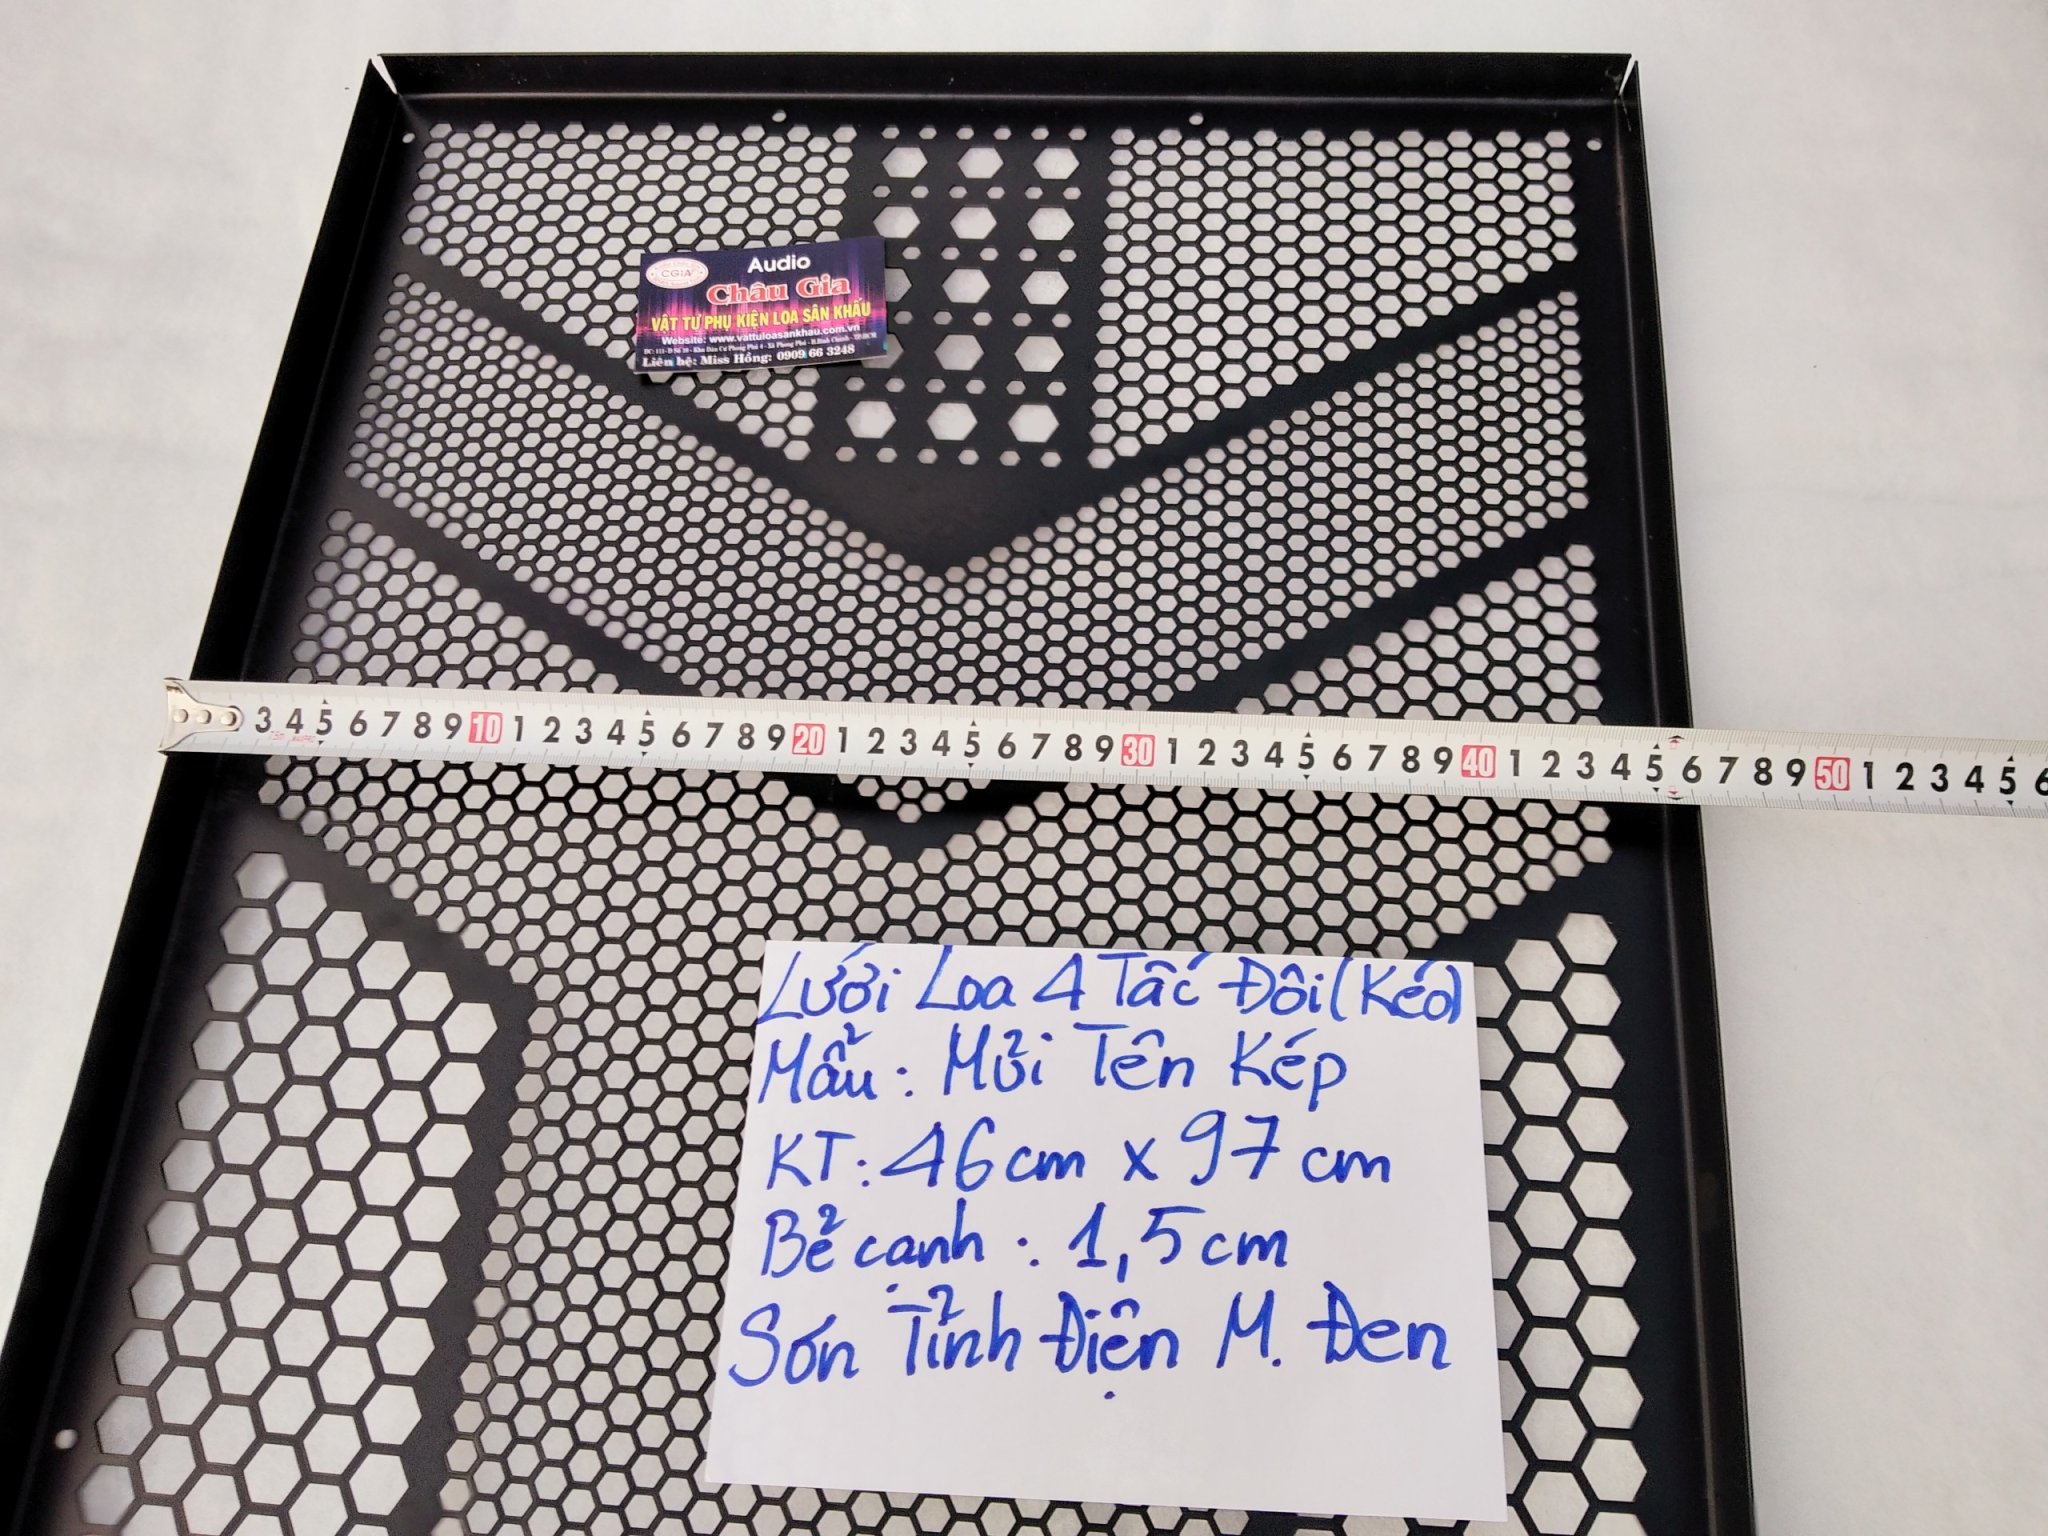 CGIA
Audio
Châu Gia
VẬT TƯ PHỤ KIỆN LOA SÂN KHẤU
Website: www.vattuloasankhau.com.vn
Liên hệ: Miss Hồng: 0909 66 3248
3 4 5 6 7 8 9 10 1 2 3 4 5 6 7 8 9 20 1 2 3 4 5 6 7 8 9 30 1 2 3 4 5 6 7 8 9 40 1 2 3 4 5 6 7 8 9 50 1 2 3 4 5 6
Lưới Loa 4 Tấc Đôi (Kéo)
Mẫu: Mũi Tên Kép
KT: 46 cm x 97 cm
Bẻ cạnh: 1,5 cm
Sơn Tĩnh Điện M. Đen